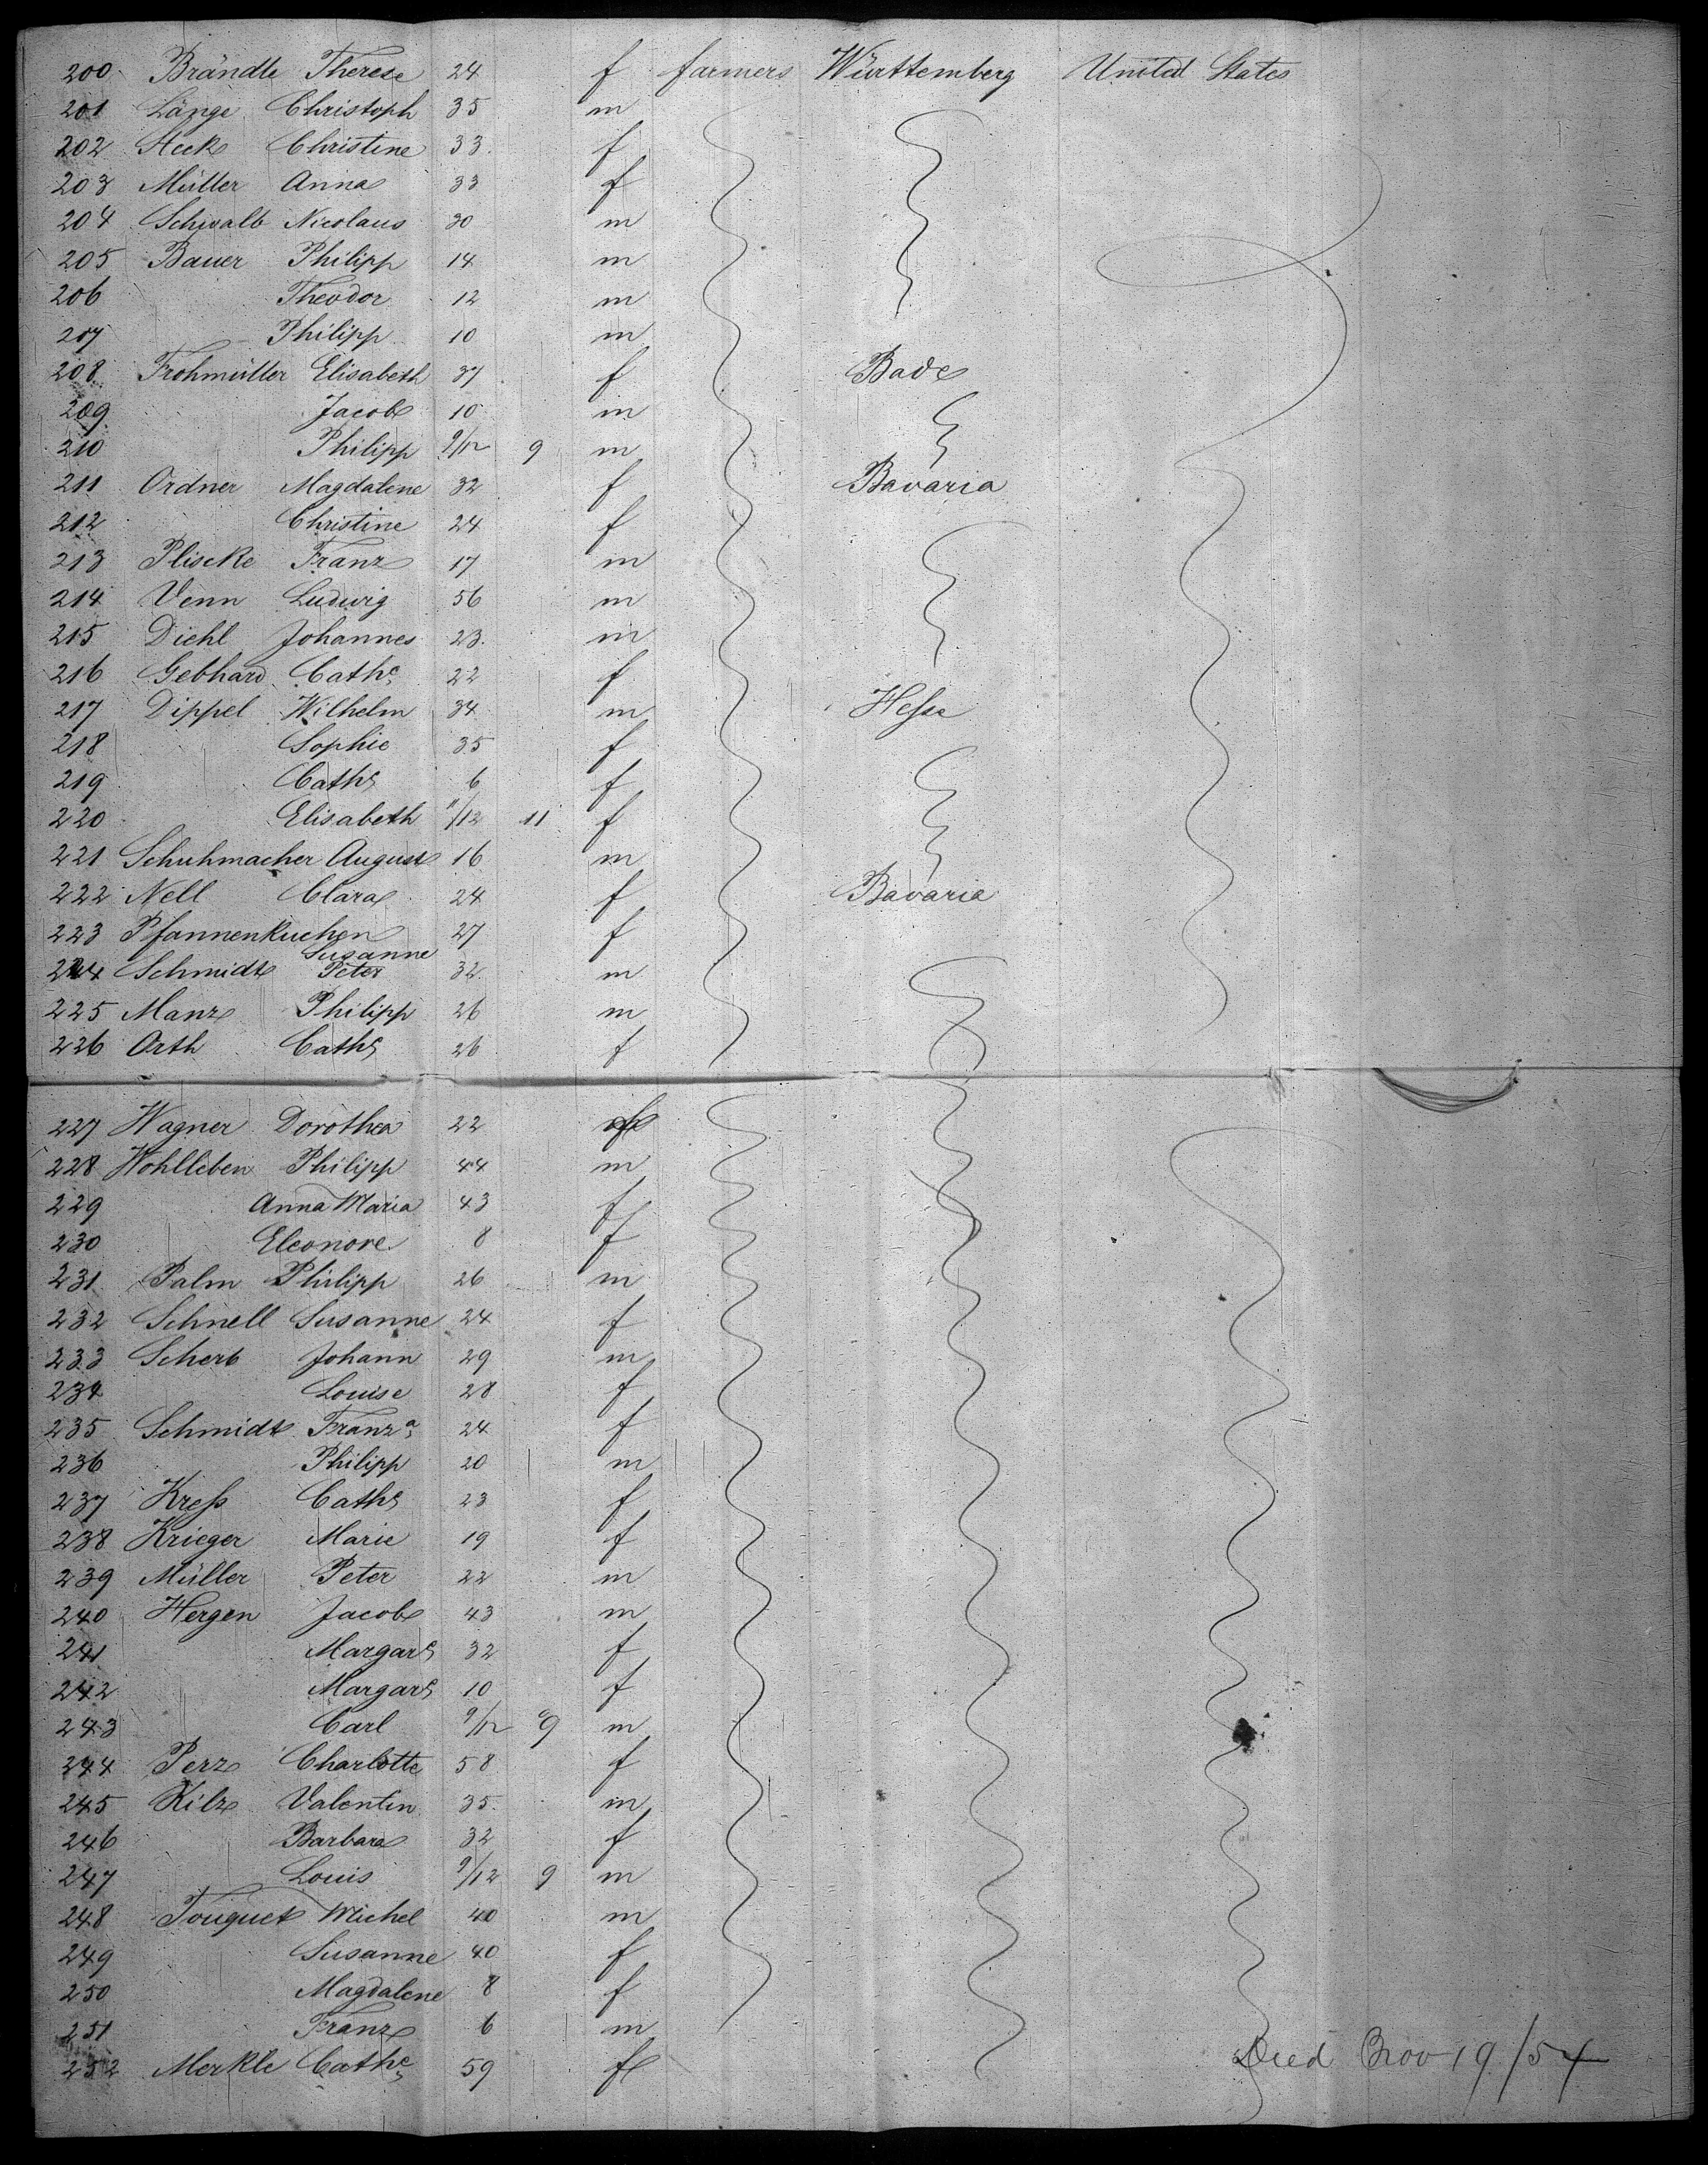 200 Brändle Therese 24 f farmers Württemberg United States
201 Länge Christoph 35 m
202 Heck Christine 33 f
203 Müller Anna 33 f
204 Schwalb Nicolaus 30 m
205 Bauer Philipp 14 m
206 Theodor 12 m
207 Philipp 10 m
208 Frohmüller Elisabeth 37 f Bade
209 Jacob 10 m
210 Philipp 9/12 9 m
211 Ordner Magdalene 32 f Bavaria
212 Christine 24 f
213 Pliscke Franz 17 m
214 Venn Ludwig 56 m
215 Diehl Johannes 23 m
216 Gebhard Cathe 22 f
217 Dippel Wilhelm 34 m Hesse
218 Sophie 35 f
219 Cathe 6 f
220 Elisabeth 11/12 11 f
221 Schuhmacher August 16 m
222 Nell Clara 24 f Bavaria
223 Pfannenkuchen Susanne 27 f
224 Schmidt Peter 32 m
225 Manz Philipp 26 m
226 Orth Cathe 26 f
227 Wagner Dorothea 22 f
228 Wohlleben Philipp 44 m
229 Anna Maria 43 f
230 Eleonore 8 f
231 Palm Philipp 26 m
232 Schnell Susanne 24 f
233 Scherb Johann 29 m
234 Louise 28 f
235 Schmidt Franza 24 f
236 Philipp 20 m
237 Kress Cathe 23 f
238 Krieger Marie 19 f
239 Müller Peter 22 m
240 Hergen Jacob 43 m
241 Margare 32 f
242 Margare 10 f
243 Carl 9/12 9 m
244 Perz Charlotte 58 f
245 Kilz Valentin 35 m
246 Barbara 32 f
247 Louis 9/12 9 m
248 Touquet Michel 40 m
249 Susanne 40 f
250 Magdalene 8 f
251 Franz 6 m
252 Merkle Cathe 59 f Died Nov 19/54